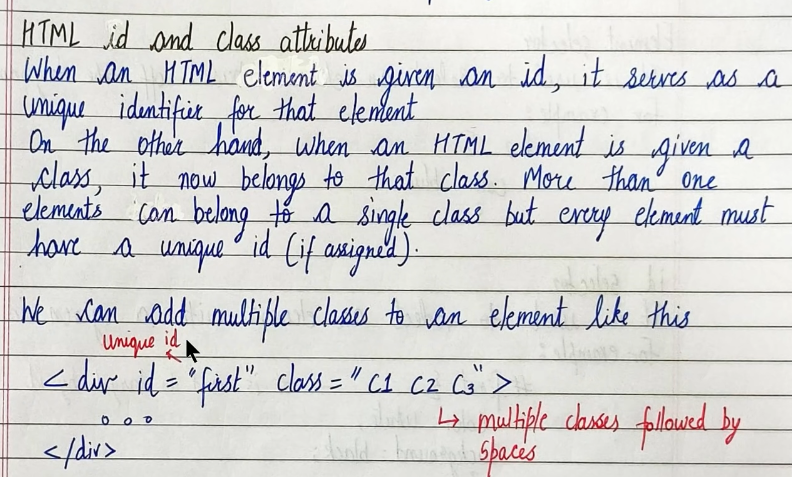 HTML id and class attributes
When an HTML element is given an id, it serves as a
unique identifier for that element
On the other hand, when an HTML element is given a
class, it now belongs to that class. More than one
elements can belong to a single class but every element must
have a unique id (if assigned).
We can add multiple classes to an element like this
unique id
< div id = "first" class = " C1 C2 C3" >
↳ multiple classes followed by
spaces
</div>